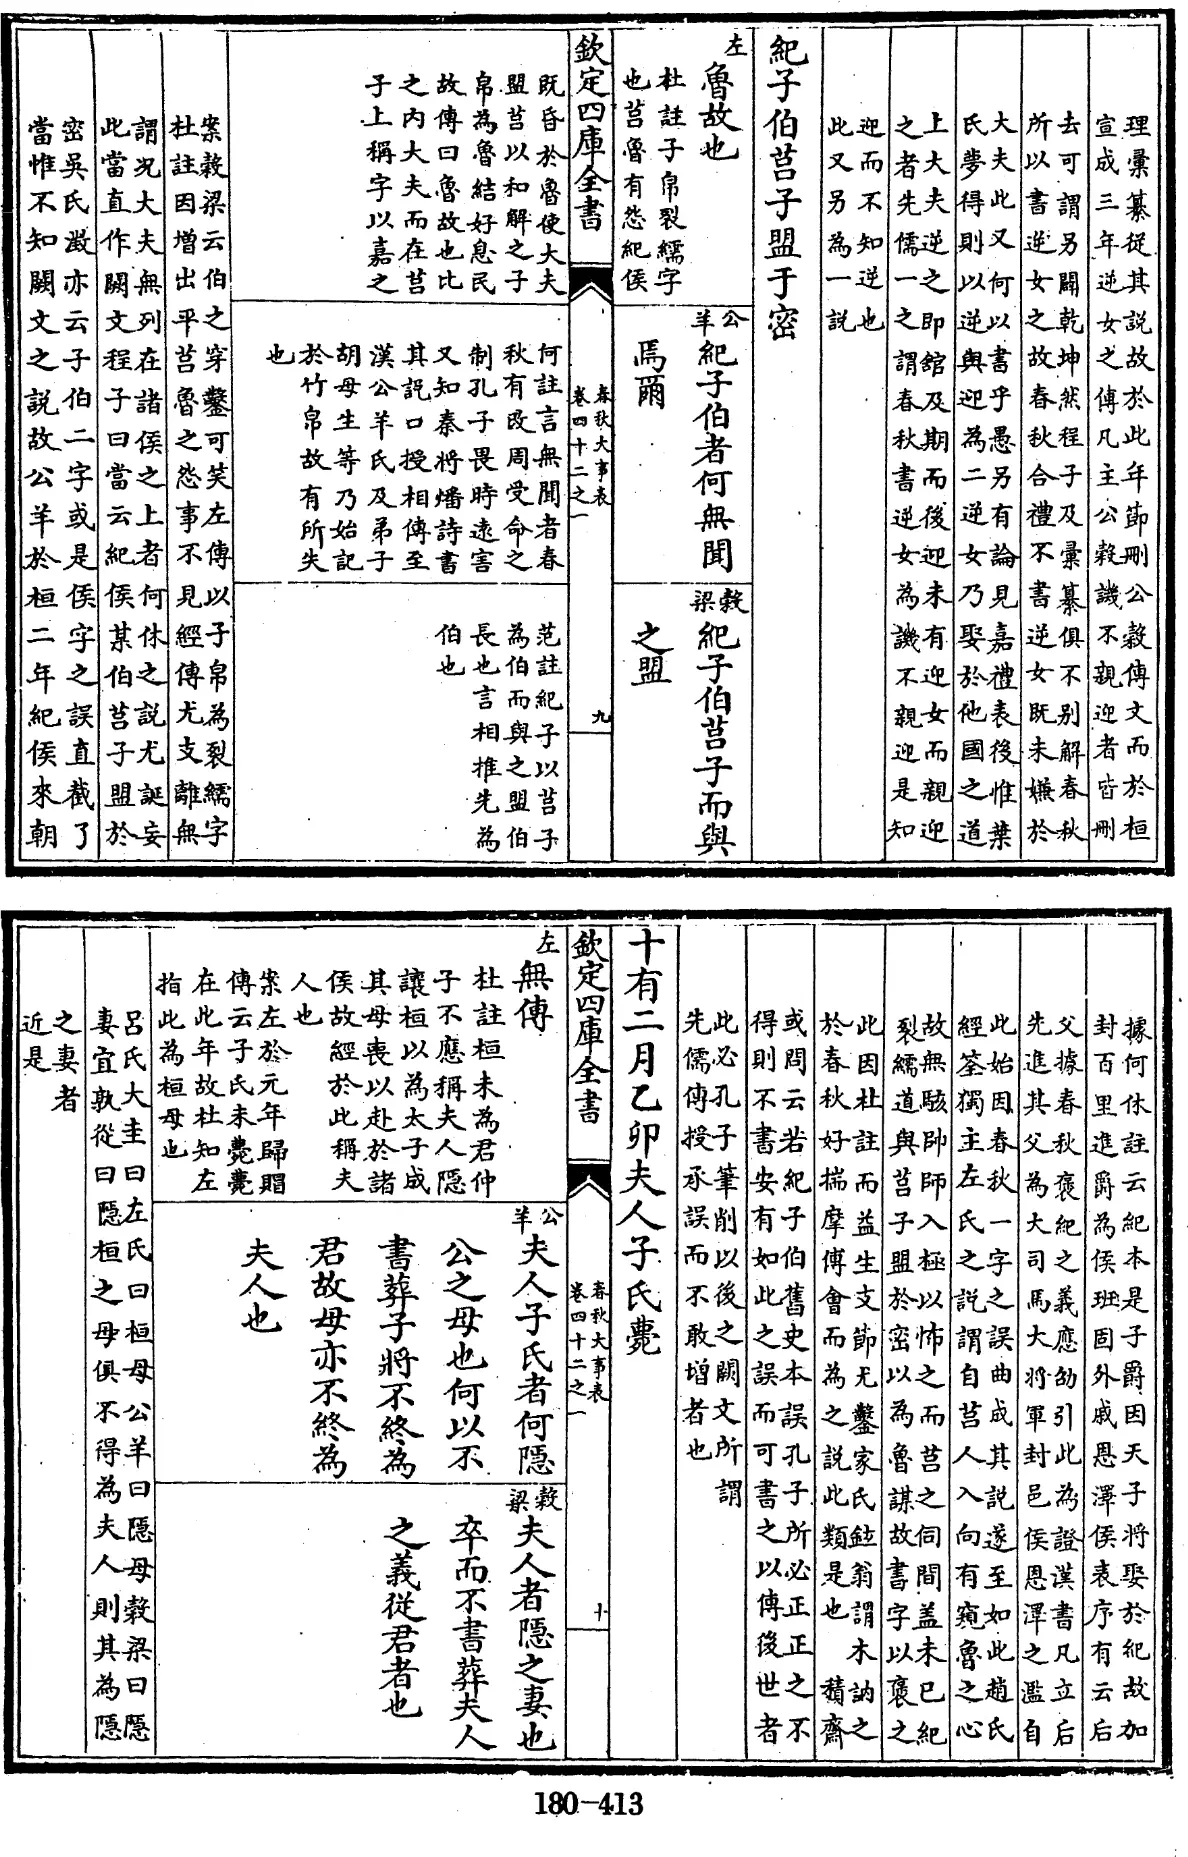 理彙纂從其説故於此年節刪公穀傳文而於桓
宣成三年逆女之傳凡主公穀譏不親迎者皆刪
去可謂另闢乾坤然程子及彙纂俱不别解春秋
所以書逆女之故春秋合禮不書逆女既未嫌於
大夫此又何以書乎愚另有論見嘉禮表後惟葉
氏夢得則以逆與迎為二逆女乃娶於他國之道
上大夫逆之即館及期而後迎未有迎女而親迎
之者先儒一之謂春秋書逆女為譏不親迎是知
迎而不知逆也
此又另為一説
紀子伯莒子盟于密
左
魯故也
杜註子帛裂繻字
也莒魯有怨紀侯
既昏於魯使大夫
盟莒以和解之子
帛為魯結好息民
故傳曰魯故也比
之内大夫而在莒
子上稱字以嘉之
公羊
紀子伯者何無聞
焉爾
何註言無聞者春
秋有改周受命之
制孔子畏時遠害
又知秦將燔詩書
其説口授相傳至
漢公羊氏及弟子
胡母生等乃始記
於竹帛故有所失
也
穀梁
紀子伯莒子而與
之盟
范註紀子以莒子
為伯而與之盟伯
長也言相推先為
伯也
欽定四庫全書
春秋大事表
卷四十二之一
九
案穀梁云伯之穿鑿可笑左傳以子帛為裂繻字
杜註因增出平莒魯之怨事不見經傳尤支離無
謂況大夫無列在諸侯之上者何休之説尤誕妄
此當直作闕文程子曰當云紀侯某伯莒子盟於
密吳氏澂亦云子伯二字或是侯字之誤直截了
當惟不知闕文之説故公羊於桓二年紀侯來朝
據何休註云紀本是子爵因天子將娶於紀故加
封百里進爵為侯班固外戚恩澤侯表序有云后
父據春秋褒紀之義應劭引此為證漢書凡立后
先進其父為大司馬大將軍封邑侯恩澤之濫自
此始因春秋一字之誤曲成其説遂至如此趙氏
經筌獨主左氏之説謂自莒人入向有窺魯之心
故無駭帥師入極以怖之而莒之伺間蓋未已紀
裂繻道與莒子盟於密以為魯謀故書字以褒之
此因杜註而益生支節尤鑿家氏鉉翁謂木訥之
於春秋好揣摩傅會而為之説此類是也　蘋齋
或問云若紀子伯舊史本誤孔子所必正正之不
得則不書安有如此之誤而可書之以傳後世者
此必孔子筆削以後之闕文所謂
先儒傳授承誤而不敢增者也
十有二月乙卯夫人子氏薨
左
無傳
杜註桓未為君仲
子不應稱夫人隱
讓桓以為太子成
其母喪以赴於諸
侯故經於此稱夫
人也
案左於元年歸賵
傳云子氏未薨薨
在此年故杜知左
指此為桓母也
公羊
夫人子氏者何隱
公之母也何以不
書葬子將不終為
君故母亦不終為
夫人也
穀梁
夫人者隱之妻也
卒而不書葬夫人
之義從君者也
欽定四庫全書
春秋大事表
卷四十二之一
十
呂氏大圭曰左氏曰桓母公羊曰隱母穀梁曰隱
妻宜孰從曰隱桓之母俱不得為夫人則其為隱
之妻者
近是
180-413